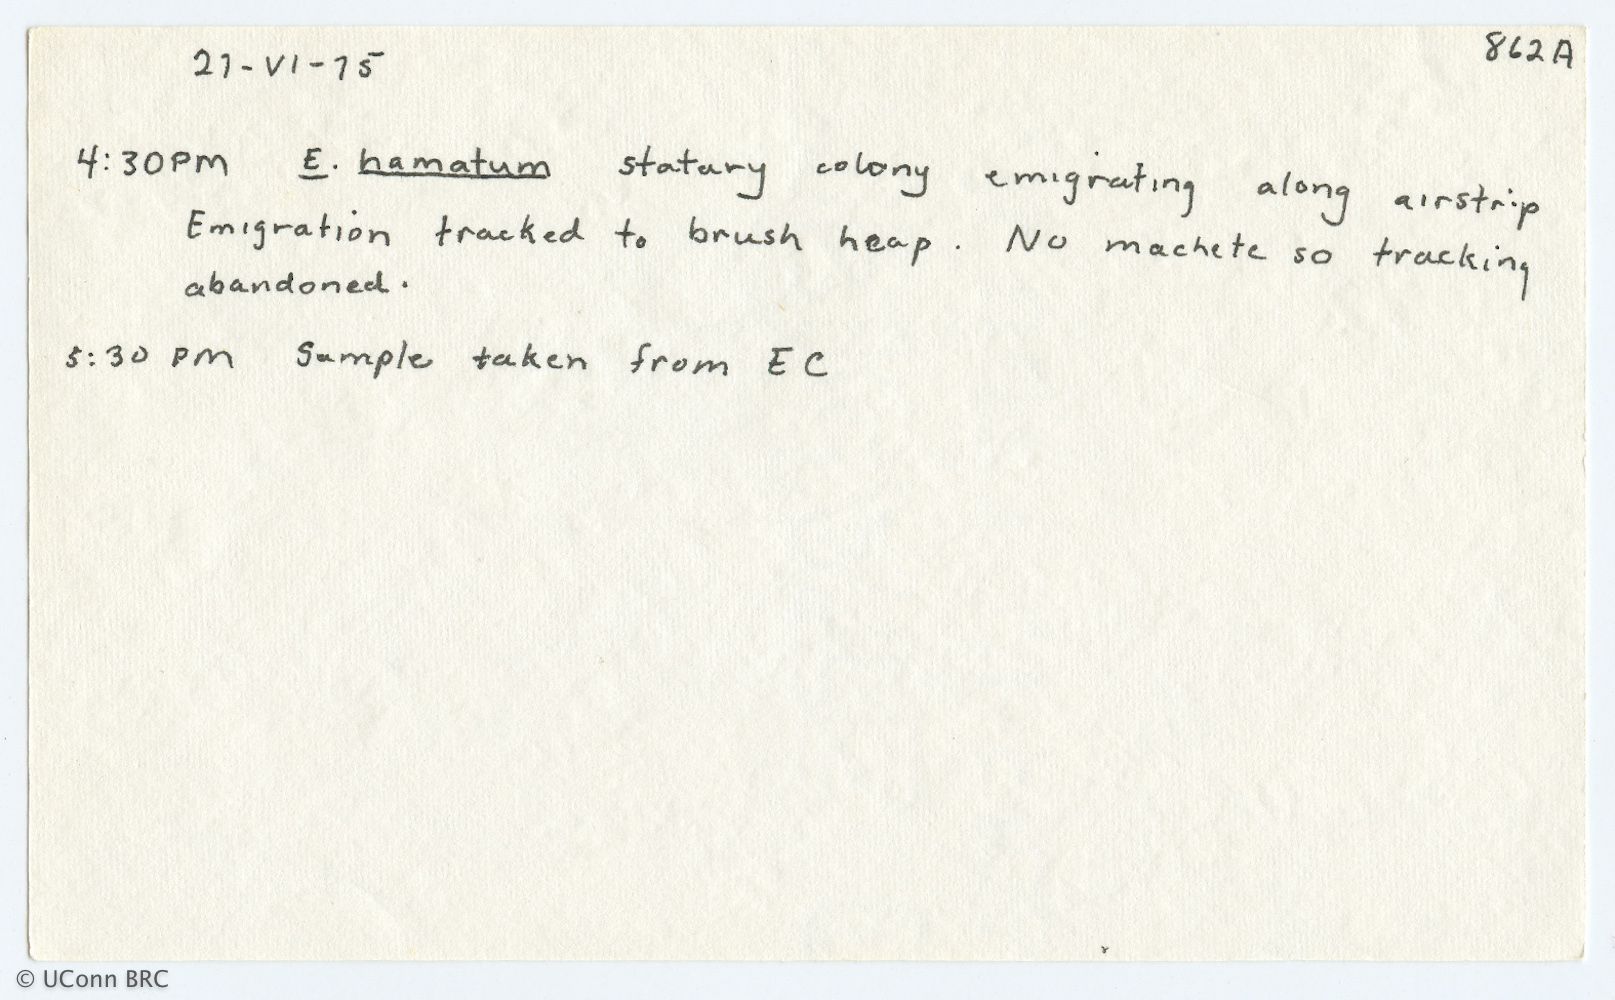 27-VI-75
862A
4:30PM E. hamatum statary colony emigrating along airstrip
Emigration tracked to brush heap. No machete so tracking
abandoned.
5:30 PM Sample taken from EC
© UConn BRC